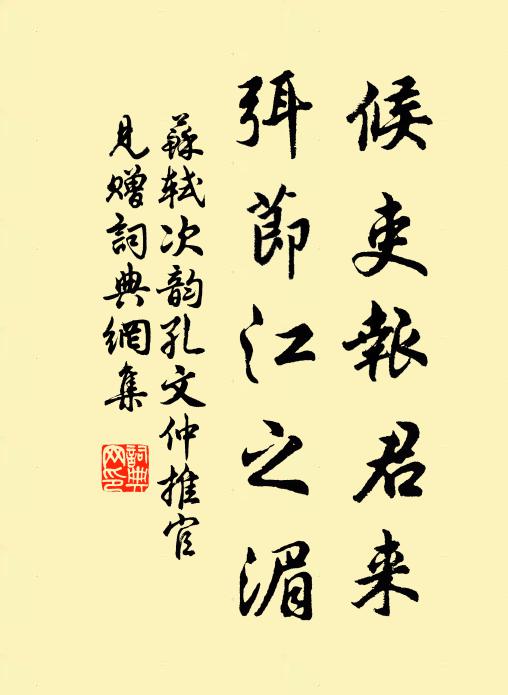 候吏報君来
弭節江之湄
蘇軾次韵孔文仲推官
見贈詞典網集
詞典
网印